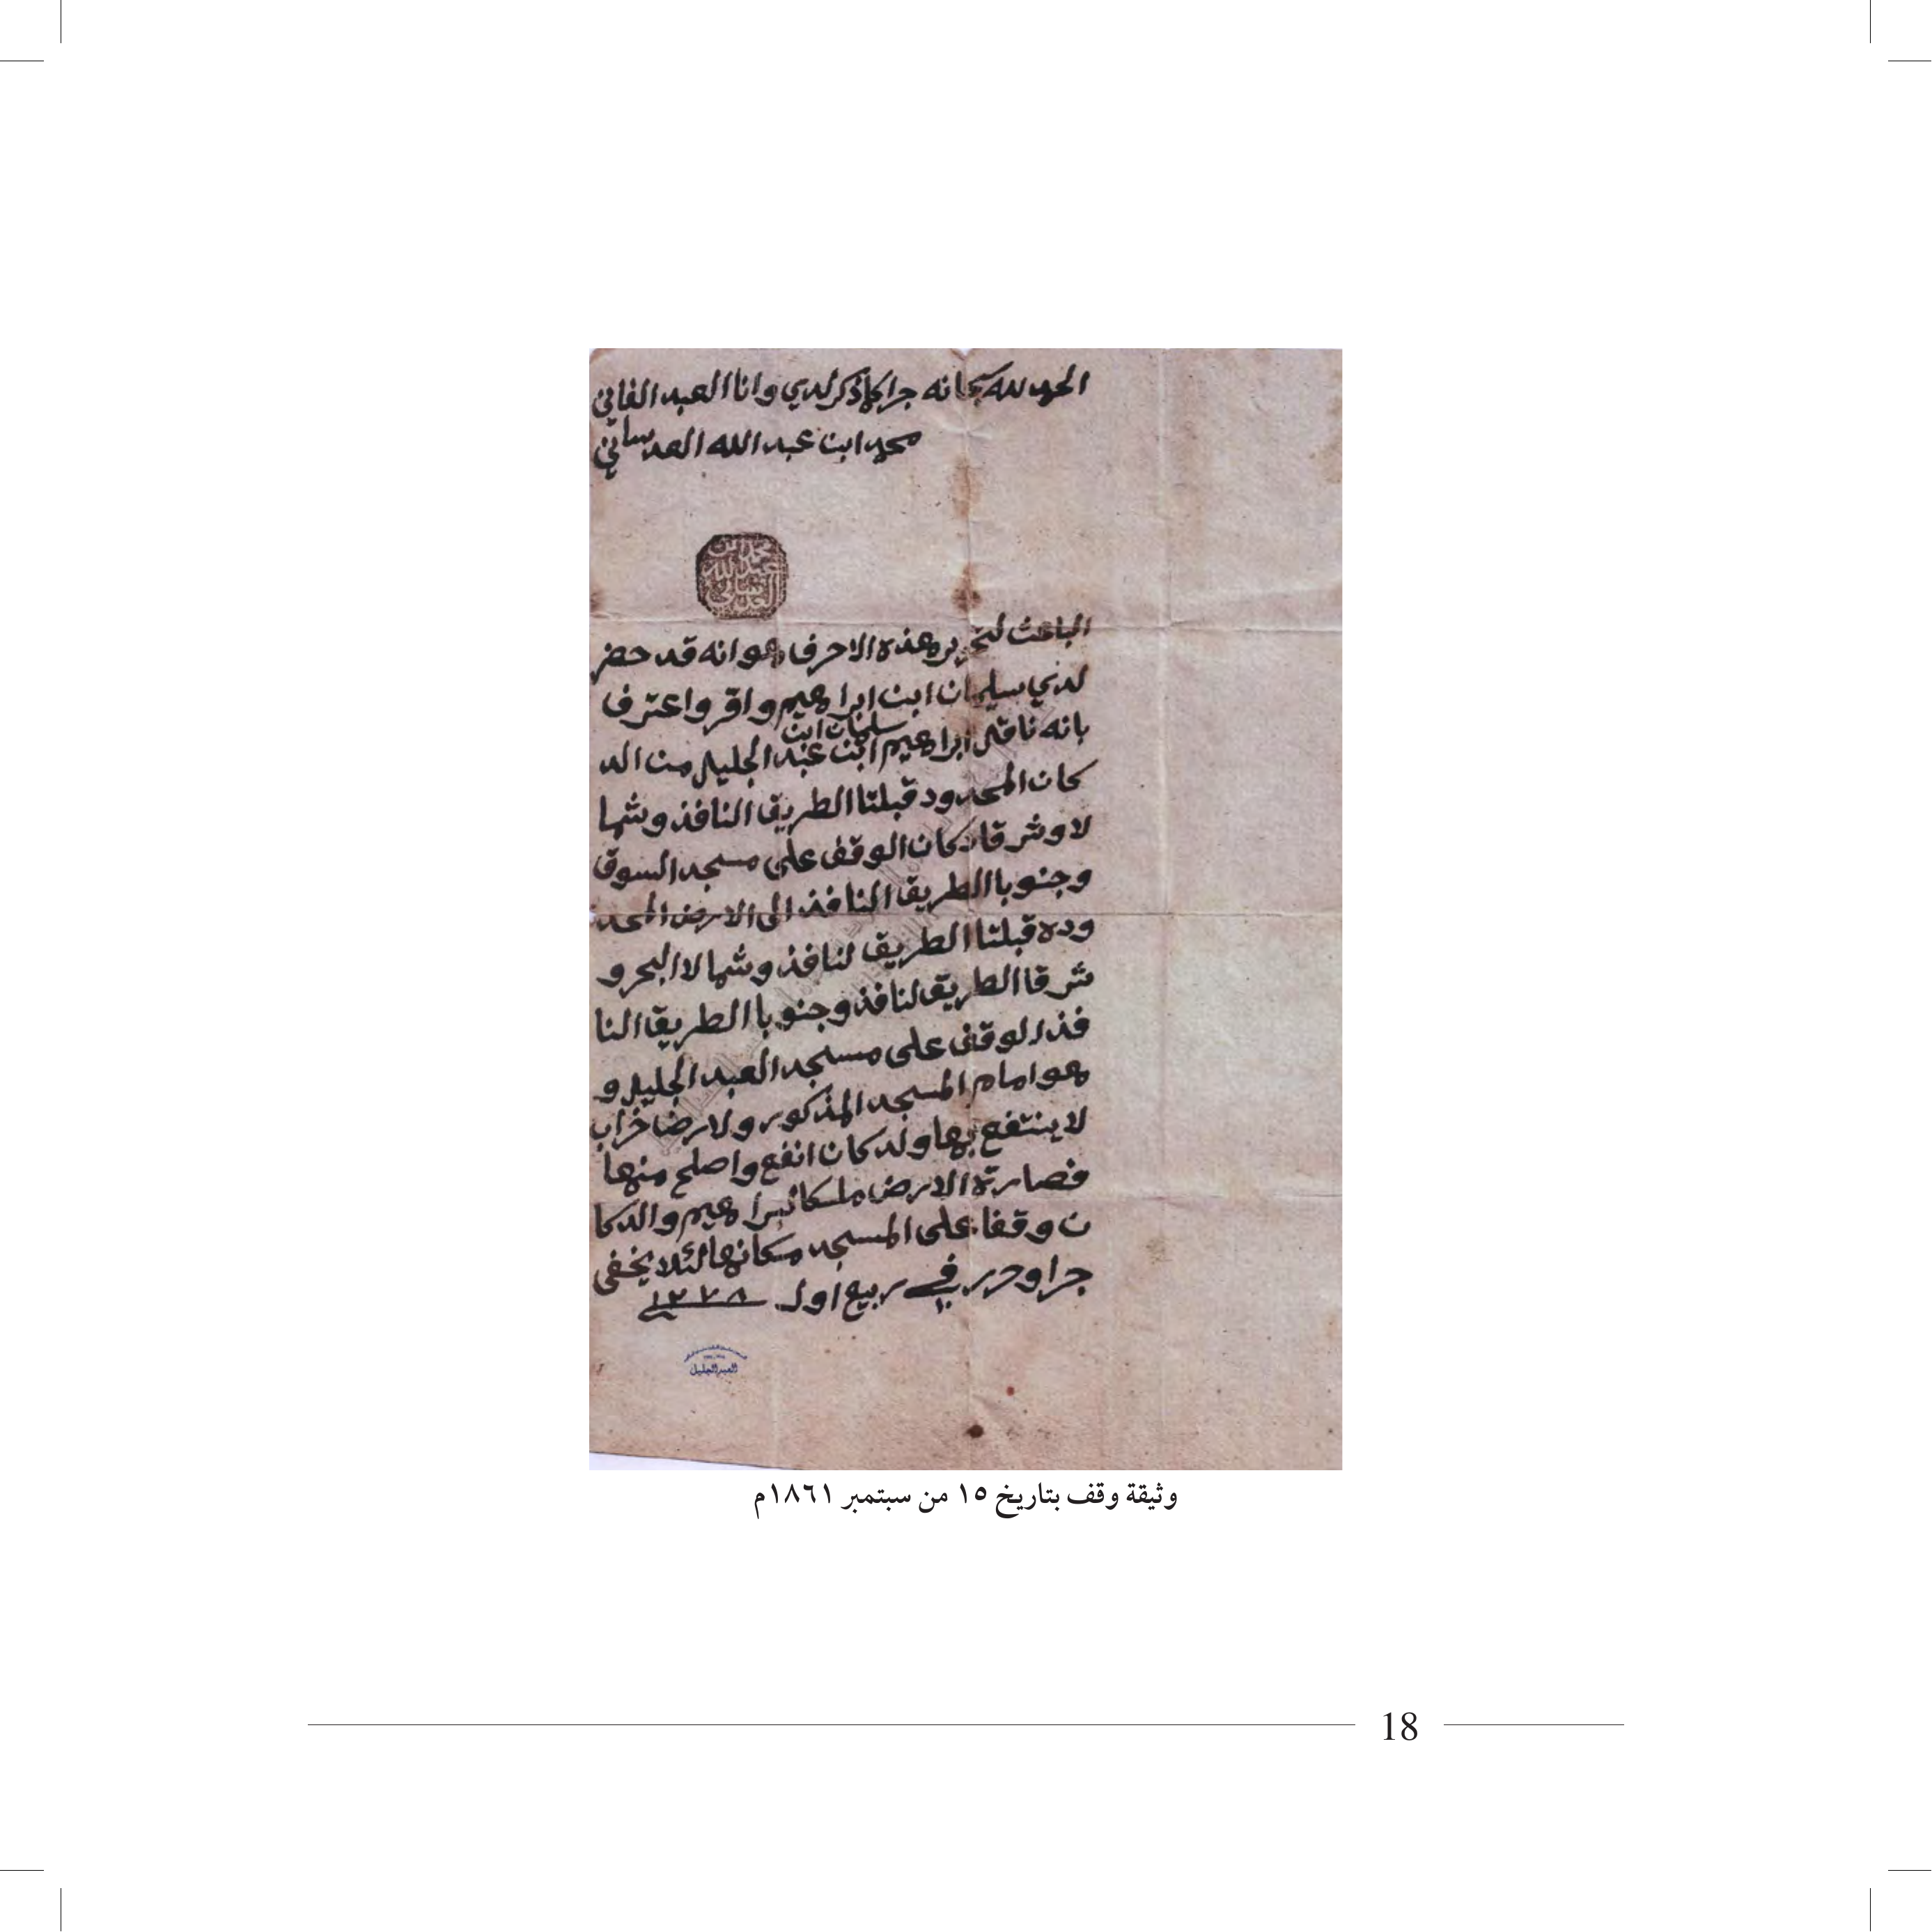 الحمد لله سبحانه جرا كما ذكر لدي وانا العبد الفاني
محمد ابن عبد الله العدساني
محمد بن
عبد الله
العدساني
الباعث لتحرير هذه الاحرف هو انه قد حضر
لدي سليمان ابن ابراهيم واقر واعترف
بانه ناقل ابراهيم سليمان ابن ابن عبد الجليل من الد
كان المحدود قبلتا الطريق النافذ وشما
لا وشرقا دكان الوقف على مسجد السوق
وجنوبا الطريق النافذ الى الارض المحد
وده قبلتا الطريق لنافذ وشمالا البحر و
شرقا الطريق لنافذ وجنوبا الطريق النا
فذ الوقف على مسجد العبد الجليل و
هو امام المسجد المذكور ولارض خراب
لا ينتفع بها ولدكان انفع واصلح منها
فصارة الارض ملكا لبراهيم والدكا
ن وقفا على المسجد مكانها لئلا يخفى
جرا وحرر في ١٠ ربيع اول ١٢٧٨
العبدالجليل
وثيقة وقف بتاريخ ١٥ من سبتمبر ١٨٦١م
18